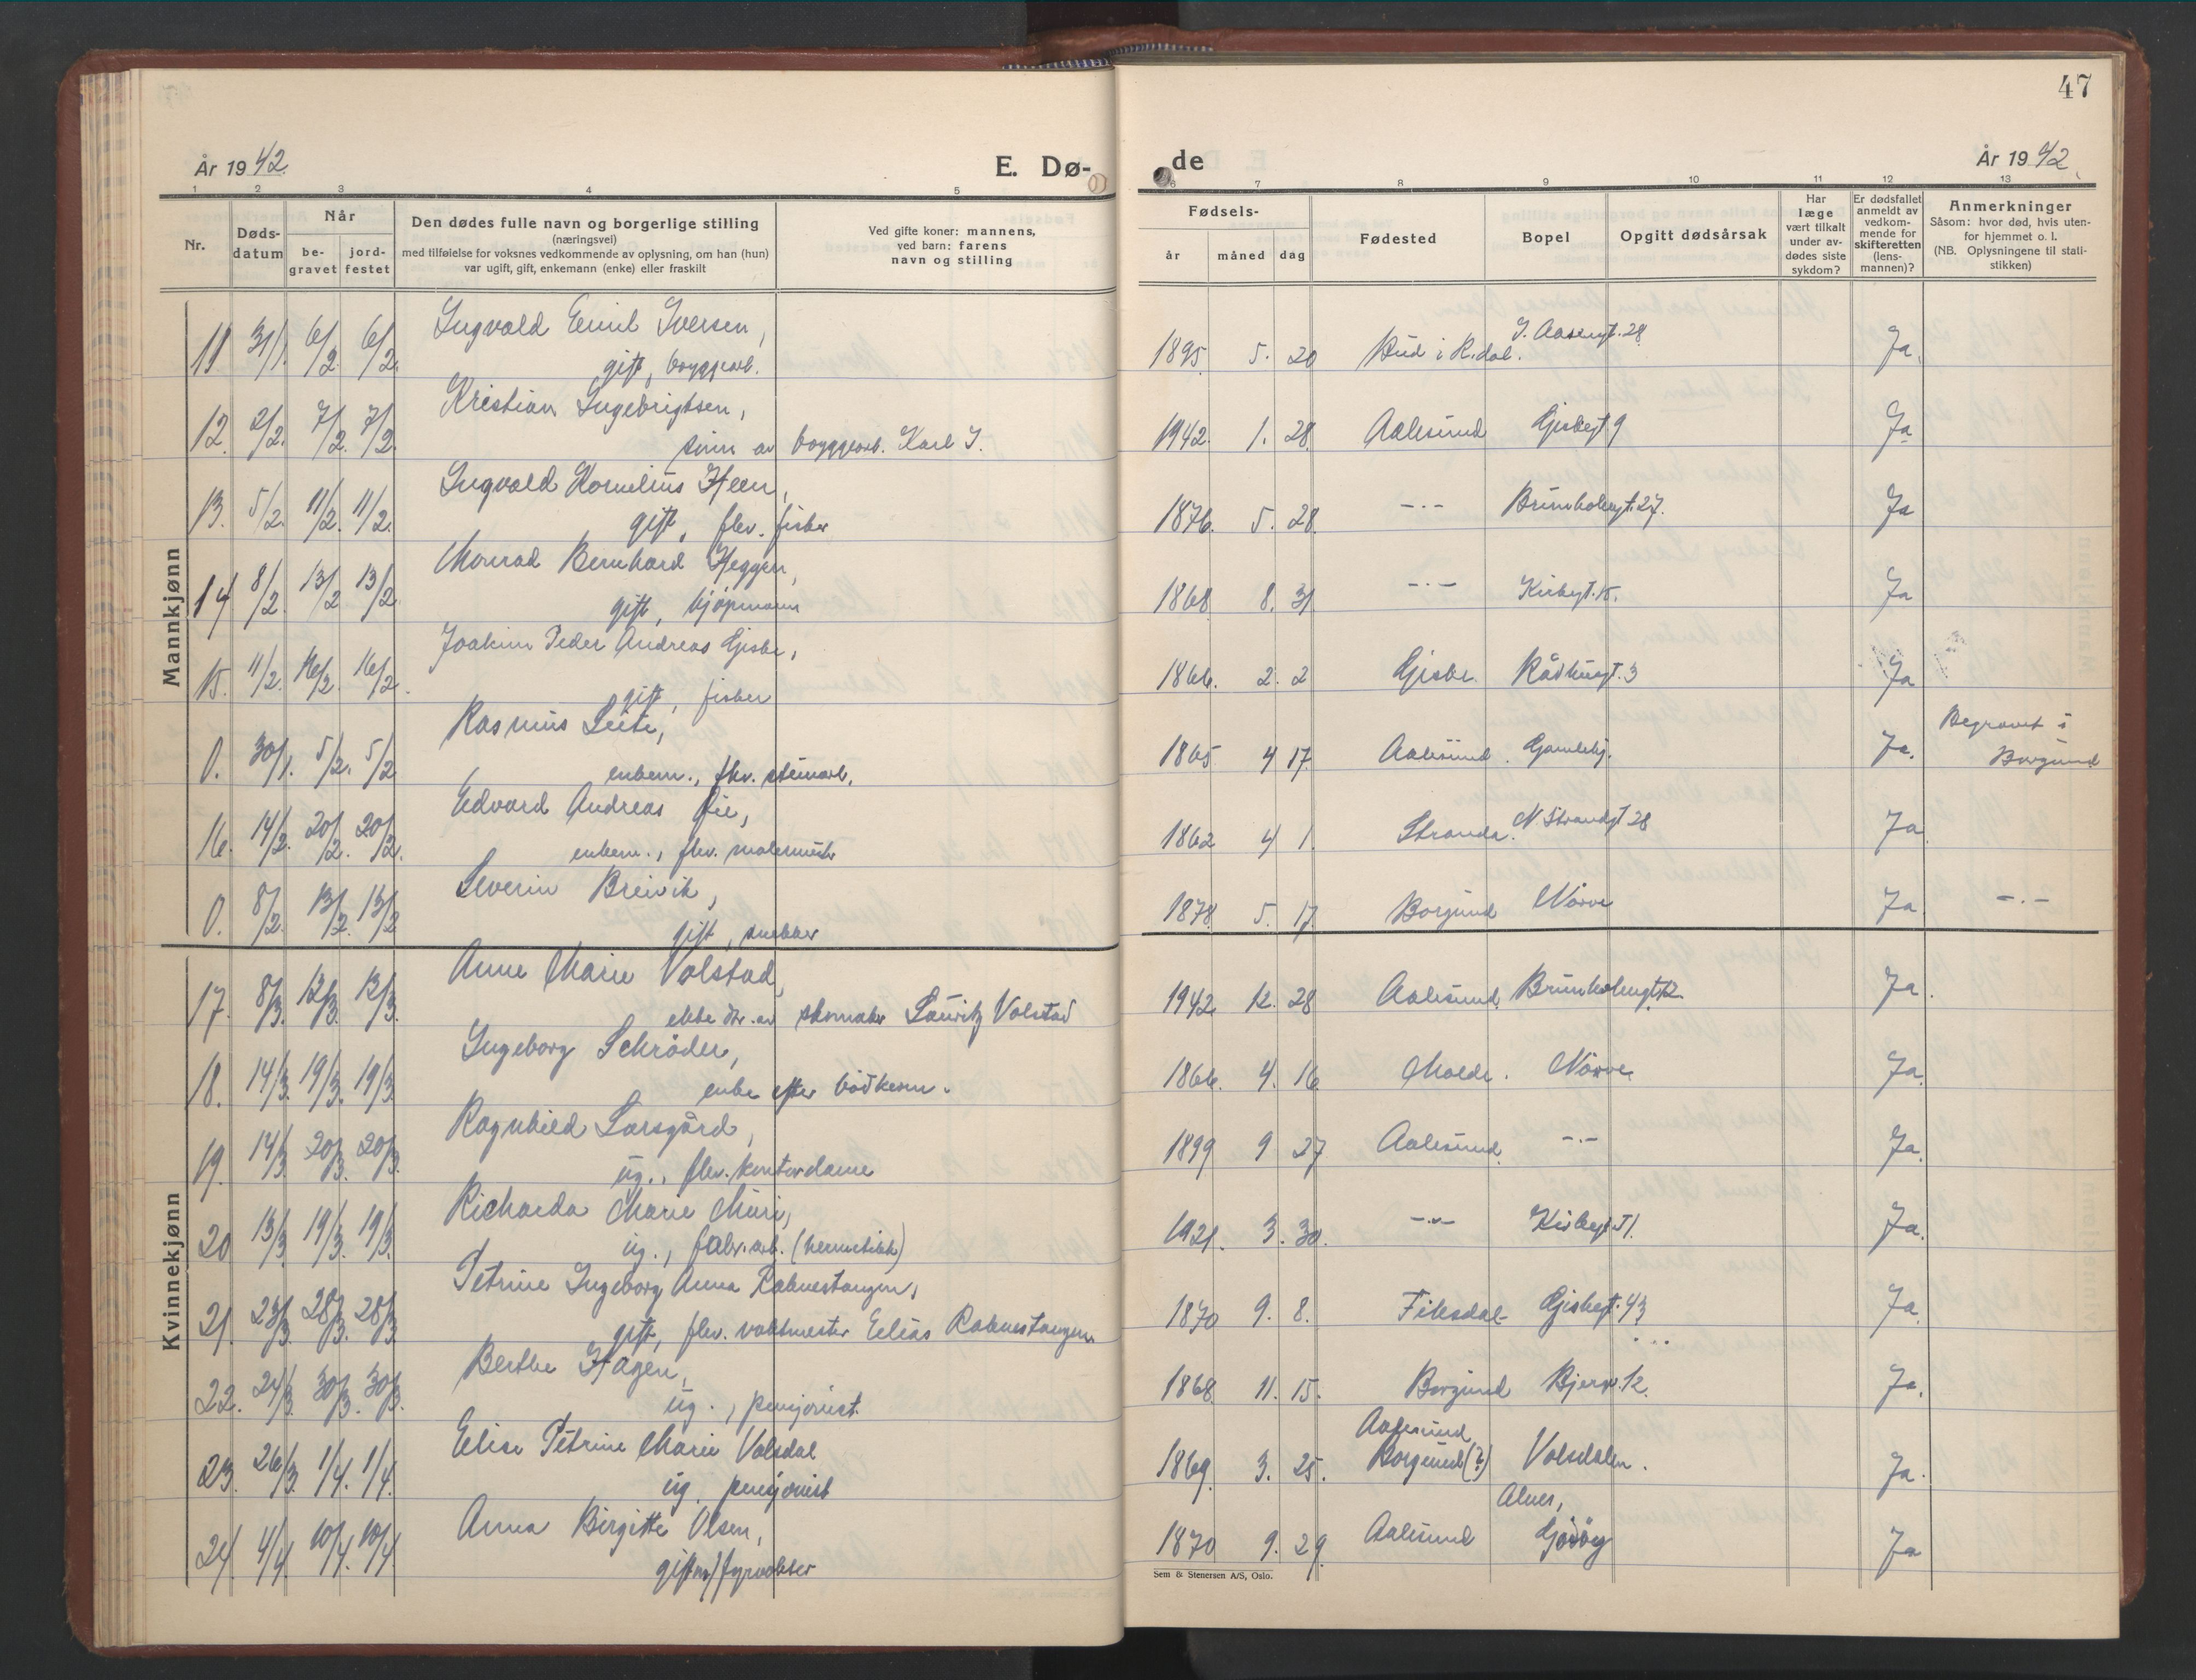 47
År 1942.
E. Dø-
de
År 1942.
1 2 3 4 5
6 7 8 9 10 11 12 13
Nr.
Døds-
datum
Når
be-
gravet
jord-
festet
Den dødes fulle navn og borgerlige stilling
(næringsvei)
med tilføielse for voksnes vedkommende av oplysning, om han (hun)
var ugift, gift, enkemann (enke) eller fraskilt
Ved gifte koner: mannens,
ved barn: farens
navn og stilling
Fødsels-
år måned dag
Fødested
Bopel
Opgitt dødsårsak
Har
læge
vært tilkalt
under av-
dødes siste
sykdom?
Er dødsfallet
anmeldt av
vedkom-
mende for
skifteretten
(lens-
mannen)?
Anmerkninger
Såsom: hvor død, hvis uten-
for hjemmet o. l.
(NB. Oplysningene til stati-
stikken)
Mannkjønn
11 31/1. 6/2. 6/2. Ingvald Emil Iversen, 1895. 5. 20 Bud i R.dal. I. Aasengt. 28 Ja.
gift, byggearb.
12. 2/2. 7/2. 7/2. Kristian Ingebrigtsen, 1942. 1. 28. Aalesund Gjskegt 9 Ja
sønn av byggearb. Karl I.
13. 5/2. 11/2. 11/2. Ingvald Kornelius Heen, 1876. 5. 28. -.- Brunholmgt. 27. Ja
gift, flev. fisker
14 8/2. 13/2 13/2. Monrad Bernhard Heggen, 1868 8. 31 -.- Kirkegt. 15. Ja
gift, kjøpmann
15. 11/2. 16/2. 16/2. Joakim Peder Andreas Gjske, 1866. 2. 2 Gjske. Rådhusgt. 3 Ja
gift, fisker
0. 30/1. 5/2. 5/2 Rasmus Leite, 1865 4 17 Aalesund. Gamlehj. Ja. Begravet i
enkem., fhv. steinarb. Borgund
16. 14/2. 20/2. 20/2. Edvard Andreas Øie, 1862 4 1. Stranda. N. Strandgt 28 Ja
enkem., fhv. malermester
0. 8/2. 13/2. 13/2 Severin Breivik, 1878. 5. 17. Borgund Nörve Ja -.-
gift, snekker
Kvinnekjønn
17. 8/3. 12/3. 12/3. Anne Marie Volstad, 1942. 12. 28 Aalesund. Brunholmgt 12. Ja.
ekte dtr. av skomaker Lauritz Volstad
18. 14/3. 19/3. 19/3 Ingeborg Schröder, 1866. 4. 16. Molde. Nörve. Ja.
enke efter bödkerm.
19. 14/3. 20/3. 20/3. Ragnhild Larsgård, 1899 9 27 Aalesund. -.- Ja.
ug., flev. kontordame
20 13/3. 19/3. 19/3. Richarda Marie Muri, 1921. 3. 30. -.- Kirkegt 51. Ja.
ug., fabr. arb. (hermetikk)
21. 23/3. 28/3. 28/3 Petrine Ingeborg Anna Raknestangen, 1870 9. 8. Fiksdal Gjskegt. 43 Ja.
gift, flev. vaktmester Elias Raknestangen
22. 24/3. 30/3. 30/3. Berthe Hagen, 1868 11. 15. Borgund Bjerv. 12. Ja.
ug., pensjonist.
23. 26/3. 1/4. 1/4. Elise Petrine Marie Volsdal 1869. 3. 25. Aalesund
Borgund (?) Volsdalen. Ja.
ug. pensjonist
24. 4/4. 10/4. 10/4. Anna Birgitte Olsen, 1870 9. 29. Aalesund Alnes,
Godöy Ja
gift m/ fyrvokter
Sem & Stenersen A/S, Oslo.